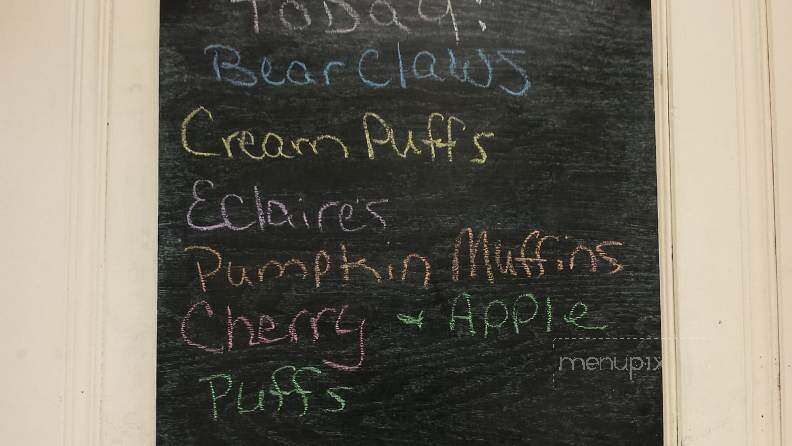 Today:
Bear Claws
Cream Puffs
Eclaire's
Pumpkin Muffins
Cherry & Apple
Puffs
menupix